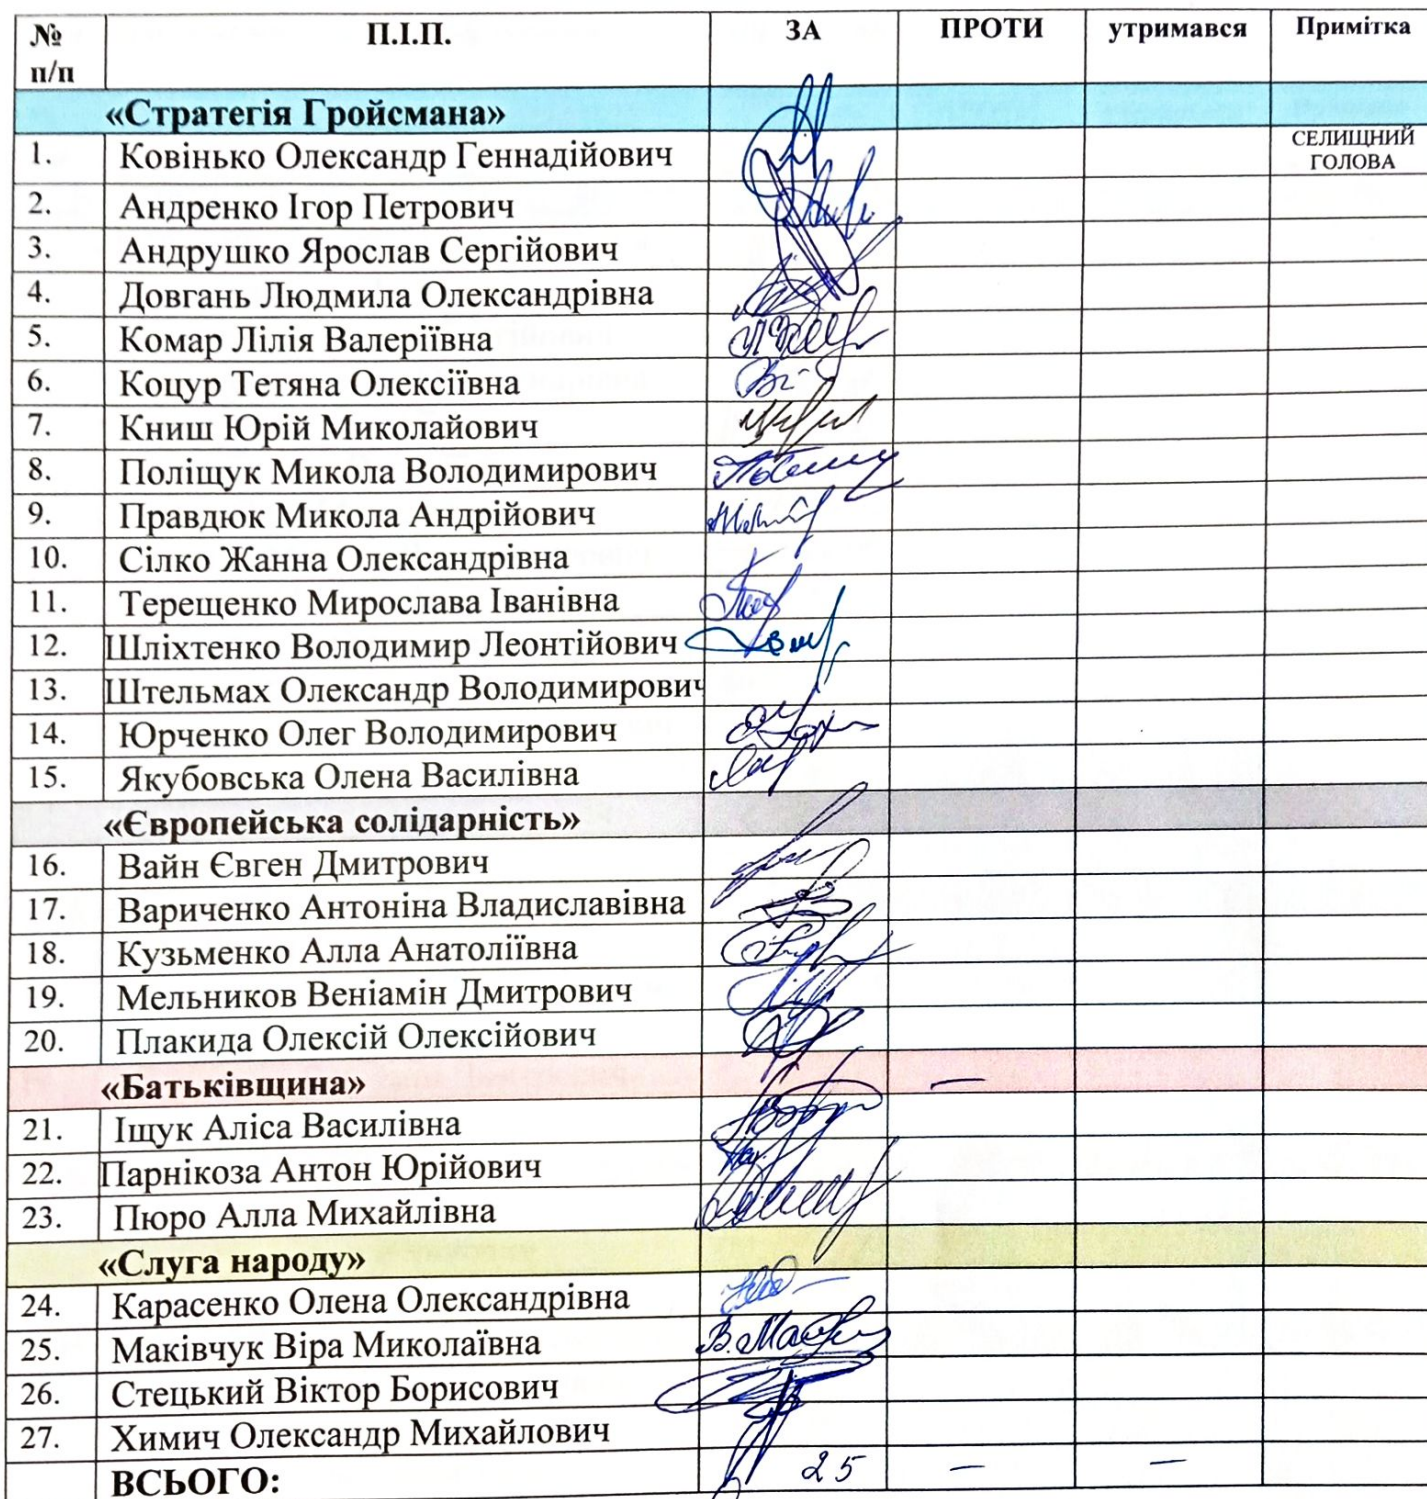 № п/п П.І.П. ЗА ПРОТИ утримався Примітка
«Стратегія Гройсмана»
1. Ковінько Олександр Геннадійович СЕЛИЩНИЙ ГОЛОВА
2. Андренко Ігор Петрович
3. Андрушко Ярослав Сергійович
4. Довгань Людмила Олександрівна
5. Комар Лілія Валеріївна
6. Коцур Тетяна Олексіївна
7. Книш Юрій Миколайович
8. Поліщук Микола Володимирович
9. Правдюк Микола Андрійович
10. Сілко Жанна Олександрівна
11. Терещенко Мирослава Іванівна
12. Шліхтенко Володимир Леонтійович
13. Штельмах Олександр Володимирович
14. Юрченко Олег Володимирович
15. Якубовська Олена Василівна
«Європейська солідарність»
16. Вайн Євген Дмитрович
17. Вариченко Антоніна Владиславівна
18. Кузьменко Алла Анатоліївна
19. Мельников Веніамін Дмитрович
20. Плакида Олексій Олексійович
«Батьківщина» —
21. Іщук Аліса Василівна
22. Парнікоза Антон Юрійович
23. Пюро Алла Михайлівна
«Слуга народу»
24. Карасенко Олена Олександрівна
25. Маківчук Віра Миколаївна
26. Стецький Віктор Борисович
27. Химич Олександр Михайлович
ВСЬОГО: 25 — —